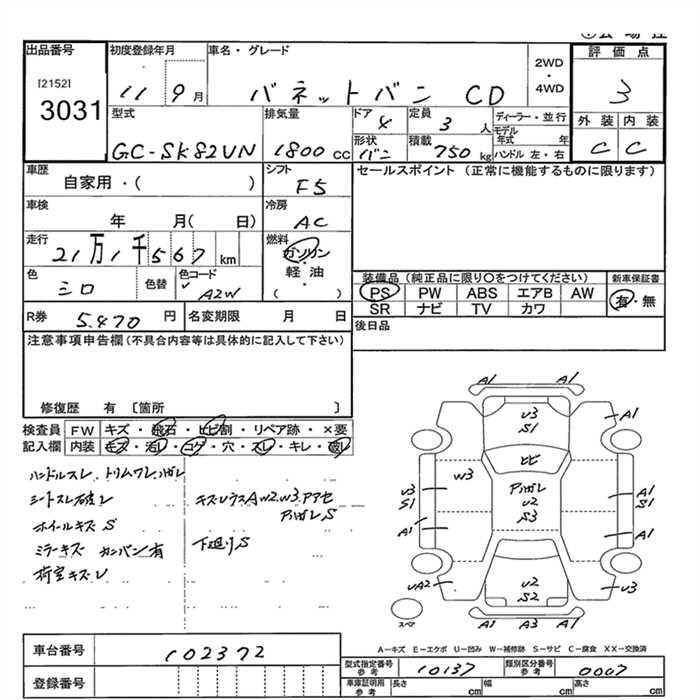 出品番号 初度登録年月 車名・グレード 2WD・4WD 評価点
[2152] 3031 11 9月 バネットバン CD 3
型式 排気量 ドア 4 定員 3人 ディーラー・並行 外装 内装
GC-SK82VN 1800cc 形状 バン 積載 750kg モデル年式 年 ハンドル 左・右 C C
車歴 シフト セールスポイント (正常に機能するものに限ります)
自家用・( ) F5
車検 年 月( 日) 冷房 AC
走行 21万1千567km 燃料 ガソリン・軽油・( )
色 シロ 色替 色コード A2W
装備品(純正品に限り○をつけてください) 新車保証書
PS PW ABS エアB AW 有・無
SR ナビ TV カワ
R券 5,470円 名変期限 月 日 後日品
注意事項申告欄(不具合内容等は具体的に記入して下さい)
修復歴 有 〔箇所
検査員 FW キズ・飛石・ヒビ割・リペア跡・×要
記入欄 内装 キズ・汚レ・コゲ・穴・スレ・キレ・破レ
ハンドルスレ トリムワレ、ハガレ
シートスレ破レ キズ、ウスA W2.W3.アアセ
ホイールキズS アハガレS
ミラーキズ カンバン有 下廻りS
荷室キズレ
A1 A1
U3 S1 A1
ヒビ
W3 アハガレ U2 S3
U3 S1 A1 S1
A1 A1
UA2 U2 S2 U3
スペア A1 A3 A1
A-キズ E-エクボ U-凹み W-補修跡 S-サビ C-腐食 XX-交換済
車台番号 102372
型式指定番号 参考 10137 類別区分番号 参考 0007
登録番号 車庫証明用 参考 長さ cm 幅 cm 高さ cm